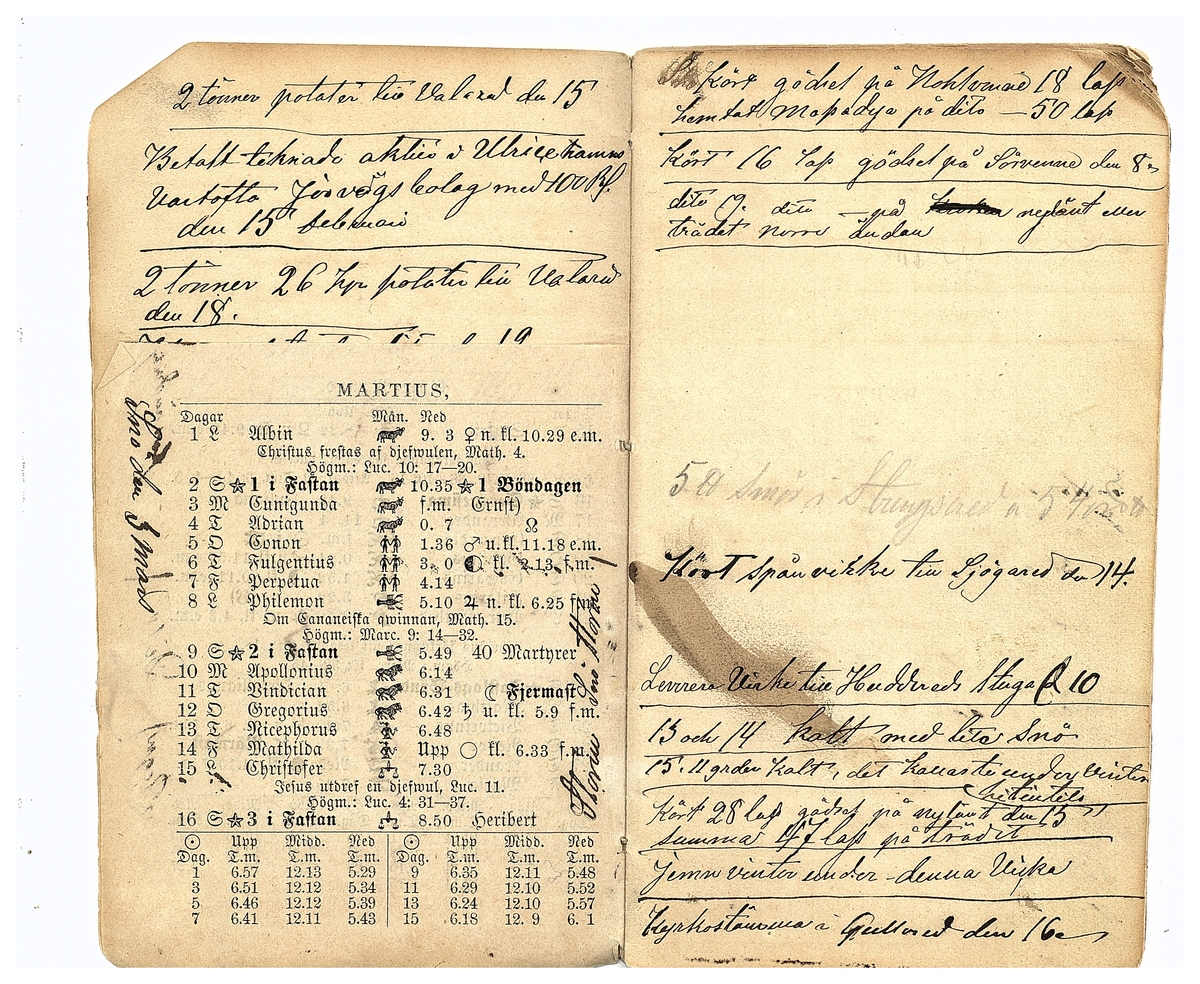 2 tönner potater till Valared den 15
Betalt teknade aktier i Ulricehamns
Vartofta Jernvägs bolag med 100 Rf.
den 15 februari
2 tönner 26 kpr potater till Valared
den 18.
19
Snö den 3 Mars
MARTIUS,
Dagar Mån. Ned
1 L Albin 9. 3 ♀ n. kl. 10.29 e.m.
Christus frestas af djefwulen, Math. 4.
Högm.: Luc. 10: 17—20.
2 S ☆ 1 i Fastan 10.35 ☆ 1 Böndagen
3 M Cunigunda f.m. Ernst)
4 T Adrian 0. 7 ☊
5 O Conon 1.36 ♂ u. kl. 11.18 e.m.
6 T Fulgentius 3. 0 kl. 2.13 f.m.
7 F Perpetua 4.14
8 L Philemon 5.10 ♃ n. kl. 6.25 f.m.
Om Cananeiska qwinnan, Math. 15.
Högm.: Marc. 9: 14—32.
9 S ☆ 2 i Fastan 5.49 40 Martyrer
10 M Apollonius 6.14
11 T Vindician 6.31 ☾ Fjermast
12 O Gregorius 6.42 ♄ u. kl. 5.9 f.m.
13 T Nicephorus 6.48
14 F Mathilda Upp ○ kl. 6.33 f.m.
15 L Christofer 7.30
Jesus utdref en djefwul, Luc. 11.
Högm.: Luc. 4: 31—37.
16 S ☆ 3 i Fastan 8.50 Heribert
☉ Upp Midd. Ned ☉ Upp Midd. Ned
Dag. T.m. T.m. T.m. Dag. T.m. T.m. T.m.
1 6.57 12.13 5.29 9 6.35 12.11 5.48
3 6.51 12.12 5.34 11 6.29 12.10 5.52
5 6.46 12.12 5.39 13 6.24 12.10 5.57
7 6.41 12.11 5.43 15 6.18 12. 9 6. 1
Storm
Kört gödsel på 18 lass
hemtat på dito — 50 lass
Kört 16 lass gödsel på Sörvenne den 8
dito 19. dito på nylänt eller
trädet norre ändan
5 ℔ Smör i Strängsered a
Kört spånvirke till Sjögared den 14.
Leverera Virke till Huddereds Stuga d 10
13 och 14 kalt med lite Snö
15. 11 grder kalt, det kallaste under vintern
hitintils
Kört 28 lass gödsel på nylänt den 15
summa 47 lass på trädet
Jemn vinter under denna Vicka
Kyrkostämma i Gullered den 16